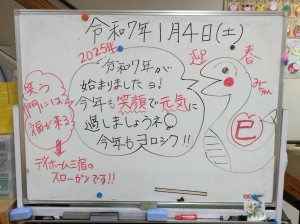 令和7年1月4日(土)
2025年
令和7年が
始まりましたヨ!
今年も笑顔で元気に
過しましょうネ
今年もヨロシク!!
迎
春
みーちゃん
巳
笑う
門には
福が来る
デイホーム三宿の
スローガンです!!